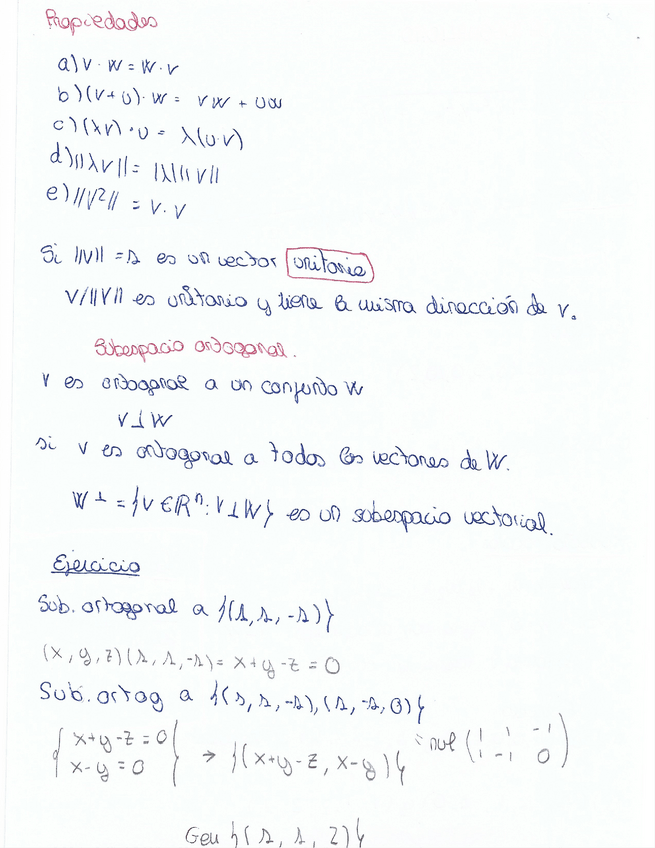 Propiedades
a) V · W = W · V
b) (V + U) · W = VW + UW
c) (λV) · U = λ(U·V)
d) ||λV|| = |λ| ||V||
e) ||V²|| = V · V
Si ||V|| = 1 es un vector unitario
V/||V|| es unitario y tiene la misma dirección de V.
Subespacio ortogonal.
V es ortogonal a un conjunto W
V ⊥ W
si V es ortogonal a todos los vectores de W.
W⊥ = {V ∈ ℝⁿ : V ⊥ W} es un subespacio vectorial.
Ejercicio
Sub. ortogonal a {(1, 1, -1)}
(x, y, z)(1, 1, -1) = x + y - z = 0
Sub. ortog a {(1, 1, -1), (1, -1, 0)}
{x + y - z = 0
x - y = 0} → {(x + y - z, x - y)} = nul (1 1 -1
1 -1 0)
Gen {(1, 1, 2)}